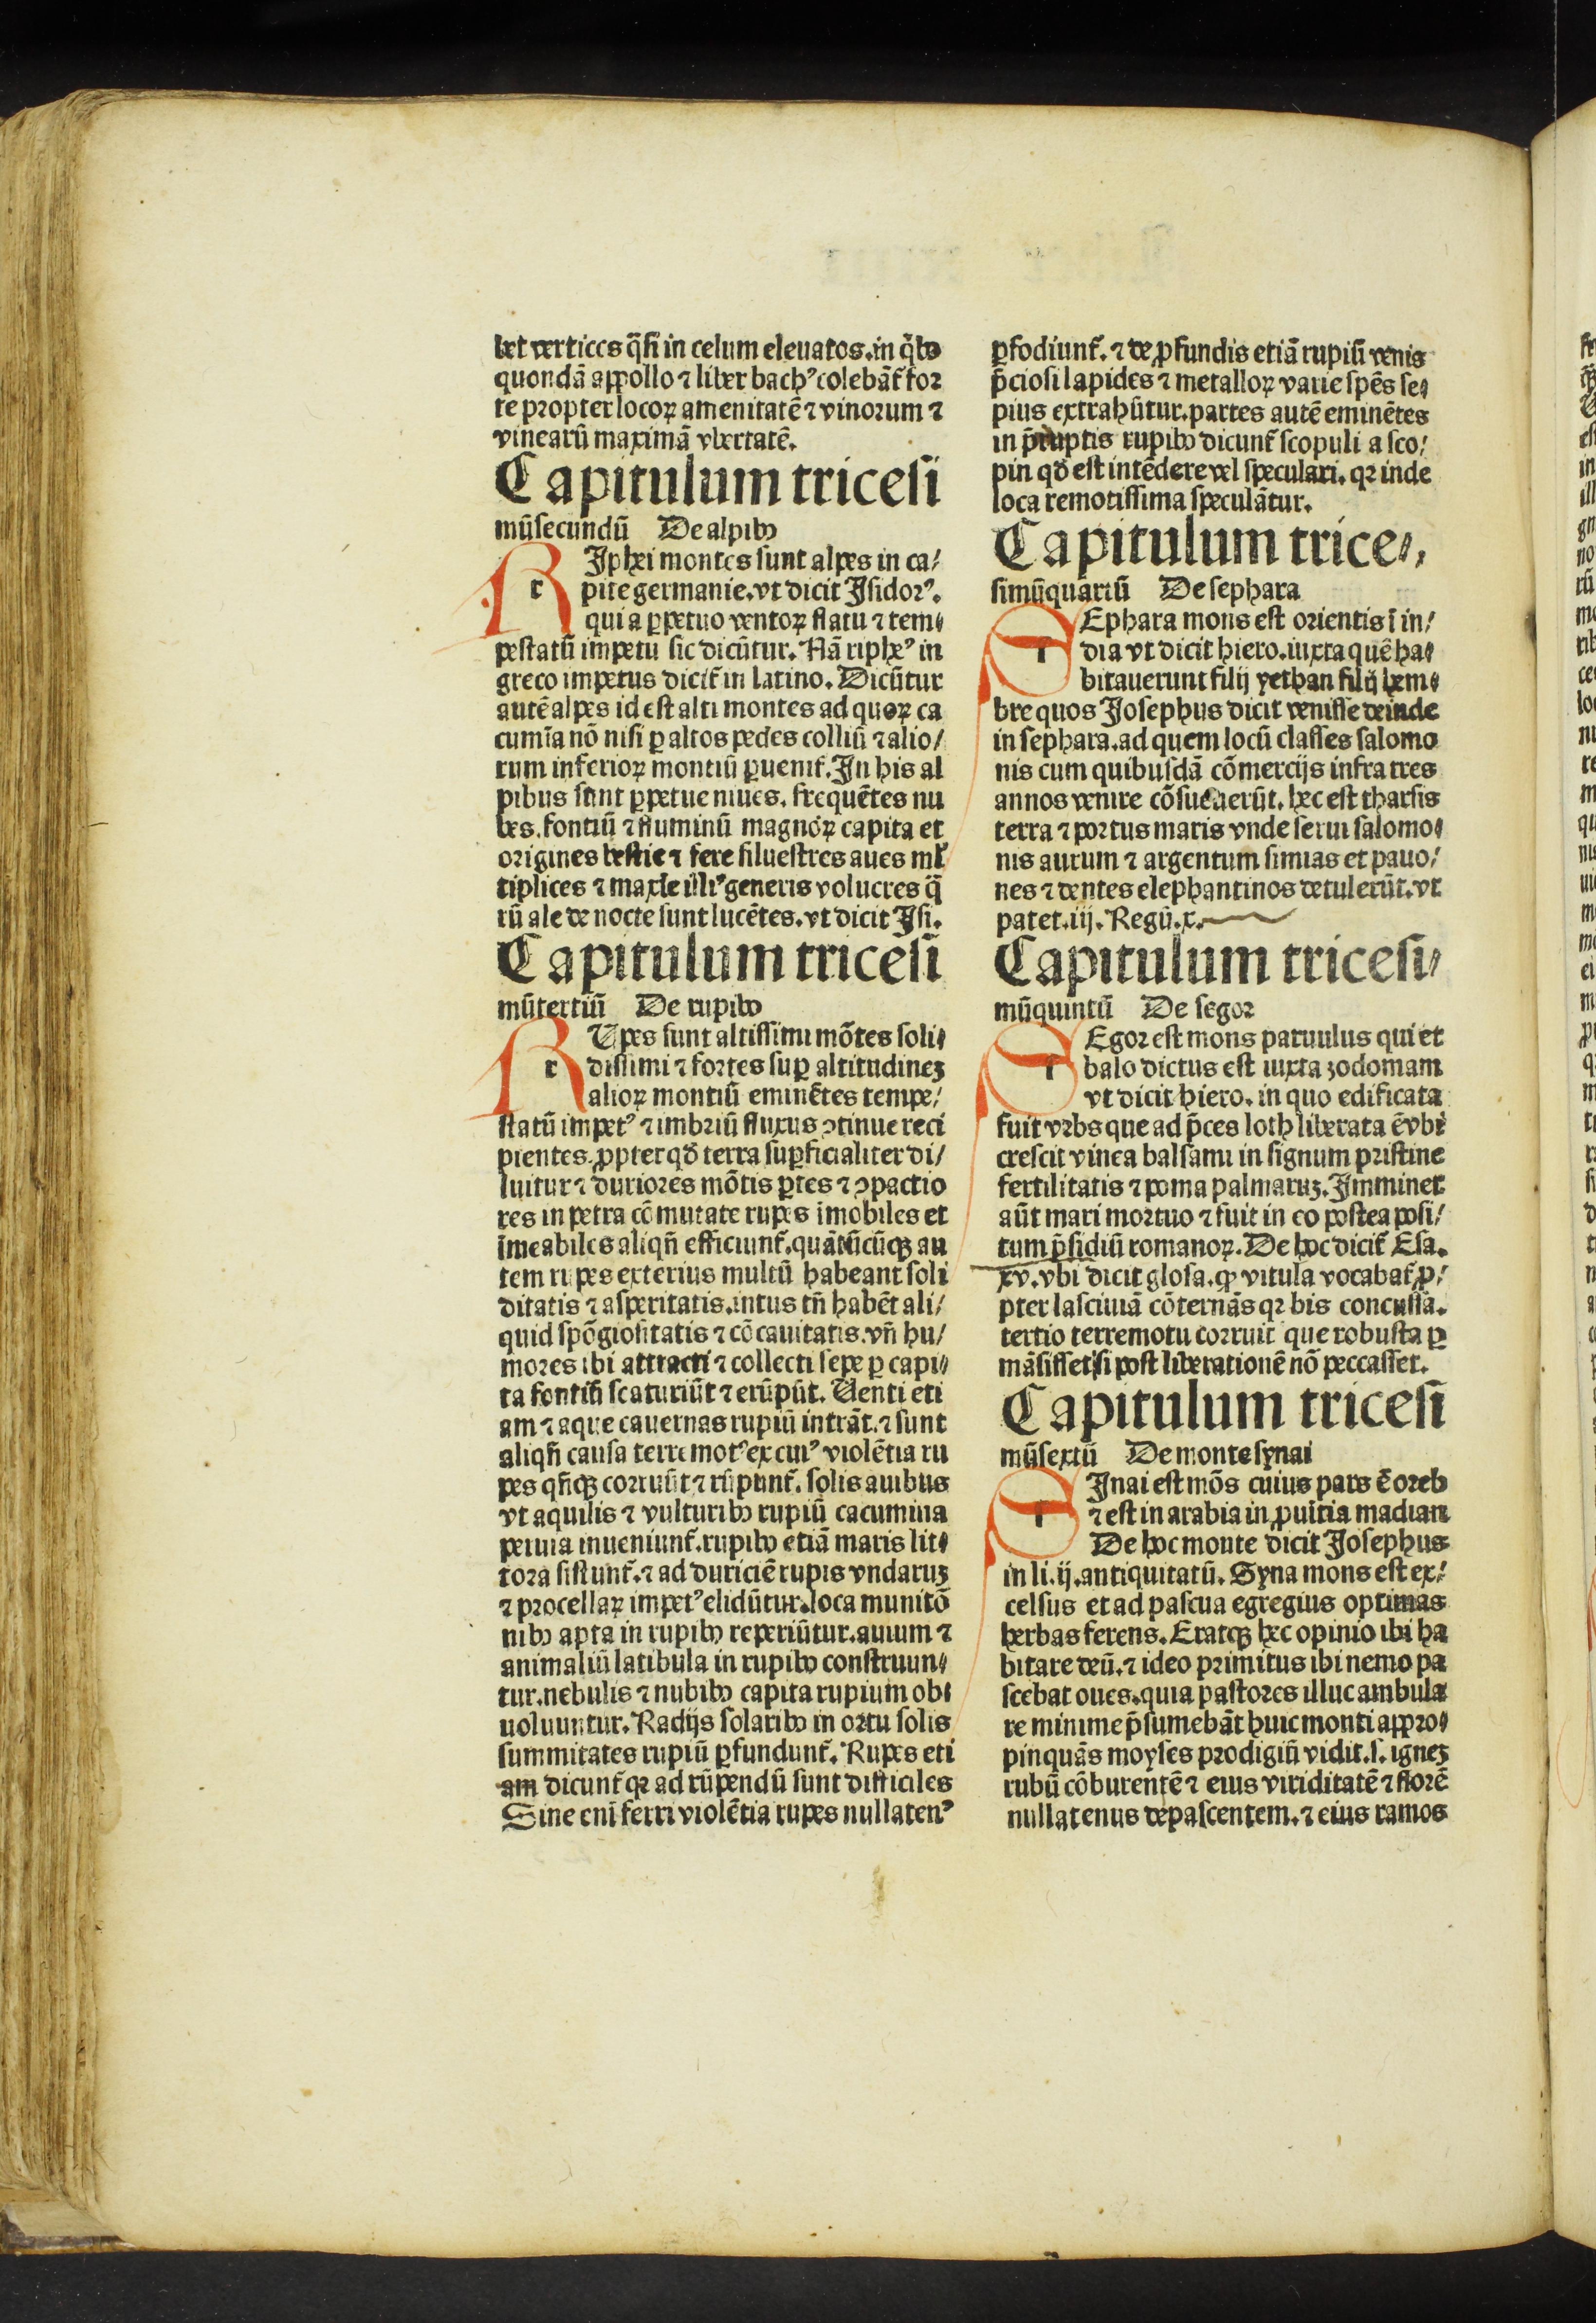 bet verticcs q̄si in celum eleuatos.in q̄bꝫ
quondā appollo ⁊ liber bachꝰ colebāt̃ for
te propter locoꝝ amenitatē ⁊ vinorum ⁊
vinearū maximā vbertatē.
Capitulum tricesi
mūsecundū De alpibꝫ
RIphei montes sunt alpes in ca/
r pite germanie.vt dicit Isidorꝰ.
qui a ꝑpetuo ventoꝝ flatu ⁊ tem/
pestatū impetu sic dicūtur. Nā ripheꝰ in
greco impetus dicit̃ in latino. Dicūtur
autē alpes id est alti montes ad quoꝝ ca
cumīa nō nisi ꝑ altos pedes colliū ⁊ alio/
rum inferioꝝ montiū ꝑuenit̃. In his al
pibus sunt ꝑpetue niues. frequētes nu
bes. fontiū ⁊ fluminū magnoꝝ capita et
origines bestie ⁊ fere siluestres aues ml̃
tiplices ⁊ maxīe illiꝰ generis volucres q̄
rū ale de nocte sunt lucētes. vt dicit Isi.
Capitulum tricesi
mūtertiū De rupibꝫ
RUpes sunt altissimi mōtes soli/
r dissimi ⁊ fortes suꝑ altitudineꝫ
alioꝝ montiū eminētes tempe/
statū impetꝰ ⁊ imbriū fluxus ꝯtinue reci
pientes. ꝓpter qđ terra suꝑficialiter di/
luitur ⁊ duriores mōtis ꝑtes ⁊ ꝯpactio
res in petra cōmutate rupes īmobiles et
īmeabiles aliqn̄ efficiunt̃. quātūcūqꝫ au
tem rupes exterius multū habeant soli
ditatis ⁊ asperitatis. intus tn̄ habēt ali/
quid spōgiositatis ⁊ cōcauitatis. vn̄ hu/
mores ibi attracti ⁊ collecti sepe ꝑ capi/
ta fontiū scaturiūt ⁊ erūpūt. Uenti eti
am ⁊ aque cauernas rupiū intrāt. ⁊ sunt
aliqn̄ causa terremotꝰ ex cuiꝰ violētia ru
pes qn̄qꝫ corruūt ⁊ rūpunt̃. solis auibus
vt aquilis ⁊ vulturibꝫ rupiū cacumina
peruia inueniunt̃. rupibꝫ etiā maris lit/
tora sistunt̃. ⁊ ad duriciē rupis vndaruꝫ
⁊ procellaꝝ impetꝰ elidūtur. loca munitō
nibꝫ apta in rupibꝫ reperiūtur. auium ⁊
animaliū latibula in rupibꝫ construun/
tur. nebulis ⁊ nubibꝫ capita rupium ob/
uoluuntur. Radijs solaribꝫ in ortu solis
summitates rupiū ꝑfundunt̃. Rupes eti
am dicunt̃ qꝛ ad rūpendū sunt difficiles
Sine enī ferri violētia rupes nullatenꝰ
ꝑfodiunt̃. ⁊ de ꝓfundis etiā rupiū venis
p̄ciosi lapides ⁊ metalloꝝ varie spēs se/
pius extrahūtur. partes autē eminētes
in p̄ruptis rupibꝫ dicunt̃ scopuli a sco/
pin qđ est intēdere vel speculari. qꝛ inde
loca remotissima speculātur.
Capitulum trice/,
simūquartū De sephara
Ephara mons est orientis ī in/
dia vt dicit hiero. iuxta quē ha/
bitauerunt filij yethan filij hem/
bre quos Iosephus dicit venisse deinde
in sephara. ad quem locū classes salomo
nis cum quibusdā cōmercijs infra tres
annos venire cōsueuerūt. hec est tharsis
terra ⁊ portus maris vnde serui salomo/
nis aurum ⁊ argentum simias et pauo/
nes ⁊ dentes elephantinos detulerūt. vt
patet. iij. Regū. x.
Capitulum tricesi/
mūquintū De segor
Egor est mons paruulus qui et
balo dictus est iuxta zodomam
vt dicit hiero. in quo edificata
fuit vrbs que ad p̄ces loth liberata ē vbi
crescit vinea balsami in signum pristine
fertilitatis ⁊ poma palmaruꝫ. Imminet
aūt mari mortuo ⁊ fuit in eo postea posi/
tum p̄sidiū romanoꝝ. De hoc dicit̃ Esa.
xv. vbi dicit glosa. ꝙ vitula vocabat̃ ꝓ/
pter lasciuiā cōternās qꝛ bis concussa.
tertio terremotu corruit que robusta ꝑ
māsisset si post liberationē nō peccasset.
Capitulum tricesi
mūsextū De monte synai
Inai est mōs cuius pars ē oreb
⁊ est in arabia in ꝓuītia madian
De hoc monte dicit Iosephus
in li. ij. antiquitatū. Syna mons est ex/
celsus et ad pascua egregius optimas
herbas ferens. Eratqꝫ hec opinio ibi ha
bitare deū. ⁊ ideo primitus ibi nemo pa
scebat oues. quia pastores illuc ambula
re minime p̄sumebāt huic monti appro/
pinquās moyses prodigiū vidit. s. igneꝫ
rubū cōburentē ⁊ eius viriditatē ⁊ florē
nullatenus depascentem. ⁊ eius ramos